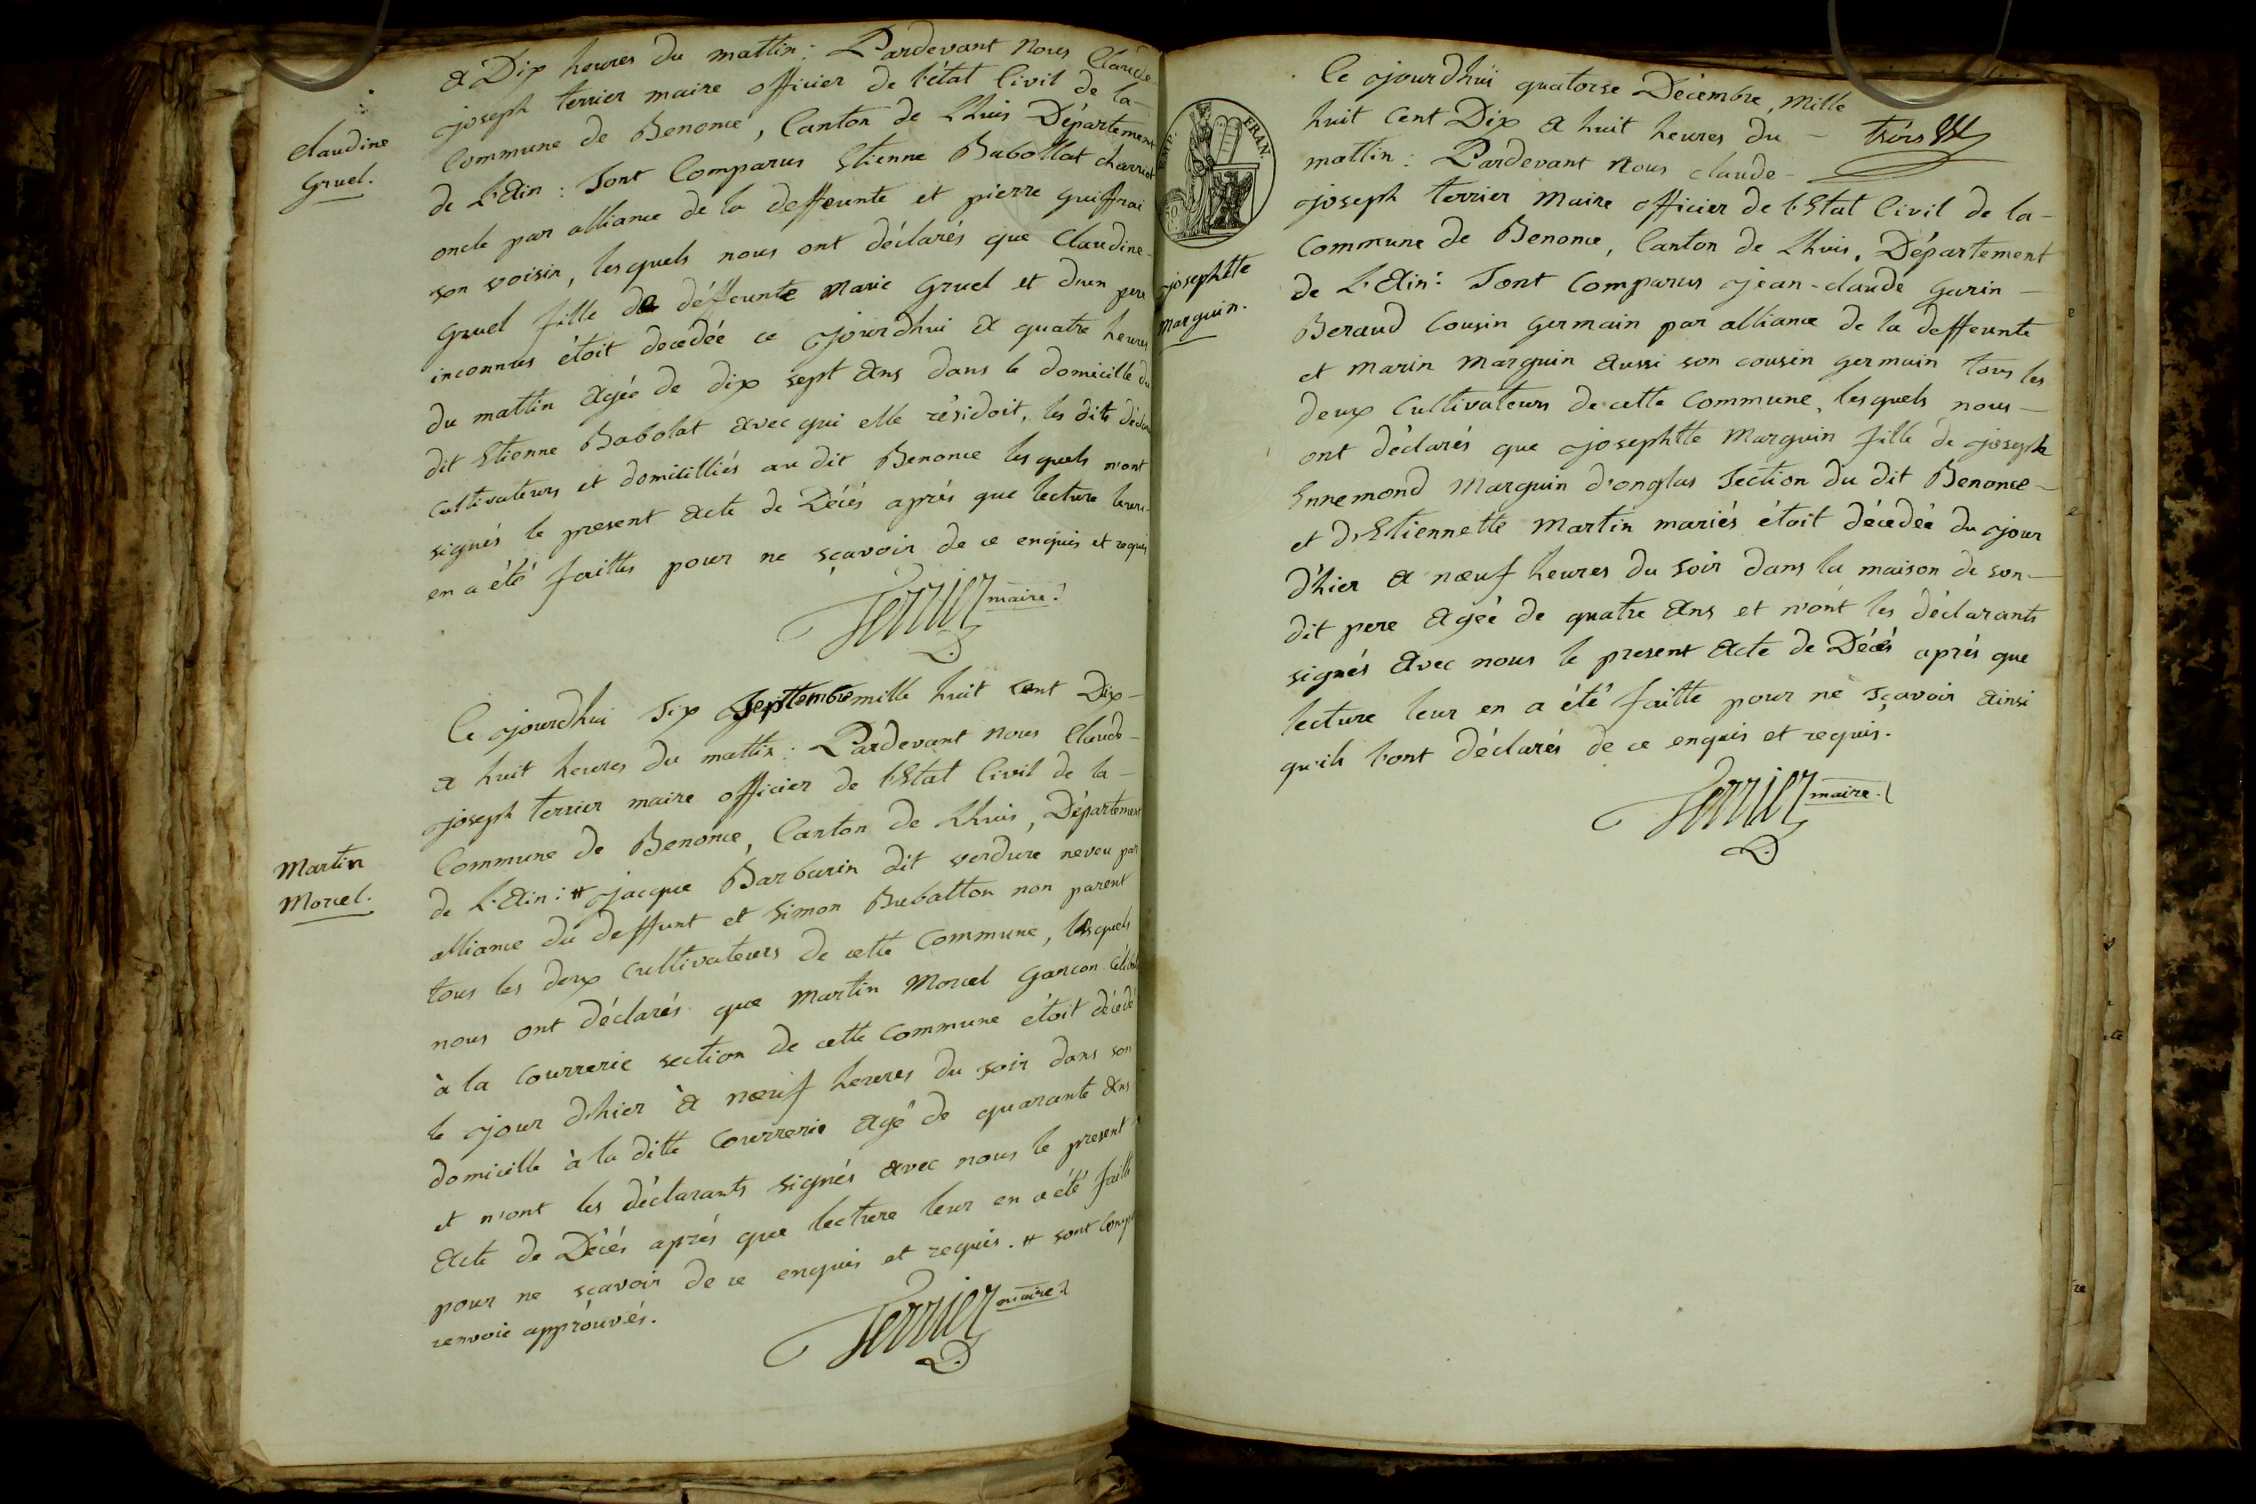 a Dix heures du mattin : Pardevant nous Claude
joseph terrier maire officier de l'état Civil de la
Claudine
Gruel.
Commune de Benonce, Canton de Lhuis Département
de L'Ain : sont Comparus Etienne Babollat charriot
oncle par alliance de la deffeunte et pierre guiffrai
son voisin, lesquels nous ont déclarés que Claudine
Gruel fille de déffeunte Marie Gruel et d'un pere
inconnus étoit decedée ce ajourdhui a quatre heures
du mattin agée de dix sept ans dans le domicille du
dit Etienne Babolat avec qui elle résidoit, les dits
cultivateurs et domicilliés au dit Benonce lesquels n'ont
signés le present acte de Décés aprés que lecture
en a été faittes pour ne sçavoir de ce enquis et requis
Terrier maire
Ce ajourdhui six Septembre mille huit cent Dix
a huit heures du mattin : Pardevant nous Claude
joseph terrier maire officier de l'Etat Civil de la
Martin
Morcel.
Commune de Benonce, Canton de Lhuis, Département
de L'Ain : # jacque Barbarin dit verdure neveu par
alliance du deffunt et Simon Babolton non parent
tous les deux cultivateurs de cette Commune, lesquels
nous ont déclarés que Martin Morcel Garcon
à la Courrerie section de cette Commune étoit décedé
le ajour d'hier à a nœuf heures du soir dans son
domicille à la ditte Courrerie agé de quarante ans
et n'ont les déclarants signés avec nous le present
Acte de Décés aprés que lecture leur en a été faitte
pour ne sçavoir de ce enquis et requis. # sont
renvoie approuvés.
Terrier maire
FRAN.
Ce ajourdhui quatorse Décembre, mille
huit Cent Dix a huit heures du
mattin : Pardevant nous claude
joseph terrier Maire officier de l'Etat Civil de la
Commune de Benonce, Canton de Lhuis, Département
josephtte
Marguin.
de L'Ain : sont Comparus jean-claude Gurin
Beraud Cousin germain par alliance de la deffeunte
et Marin Marguin aussi son cousin germain tous les
deux Cultivateurs de cette Commune, lesquels nous
ont déclarés que josephtte Marguin fille de joseph
Ennemond Marguin d'onglas section du dit Benonce
et d'Etiennette Martin mariés étoit décédée du ajour
d'hier a nœuf heures du soir dans la maison de son
dit pere agée de quatre ans et n'ont les déclarants
signés avec nous le present acte de Décés aprés que
lecture leur en a été faitte pour ne sçavoir ainsi
qu'ils l'ont déclarés de ce enquis et requis.
Terrier maire